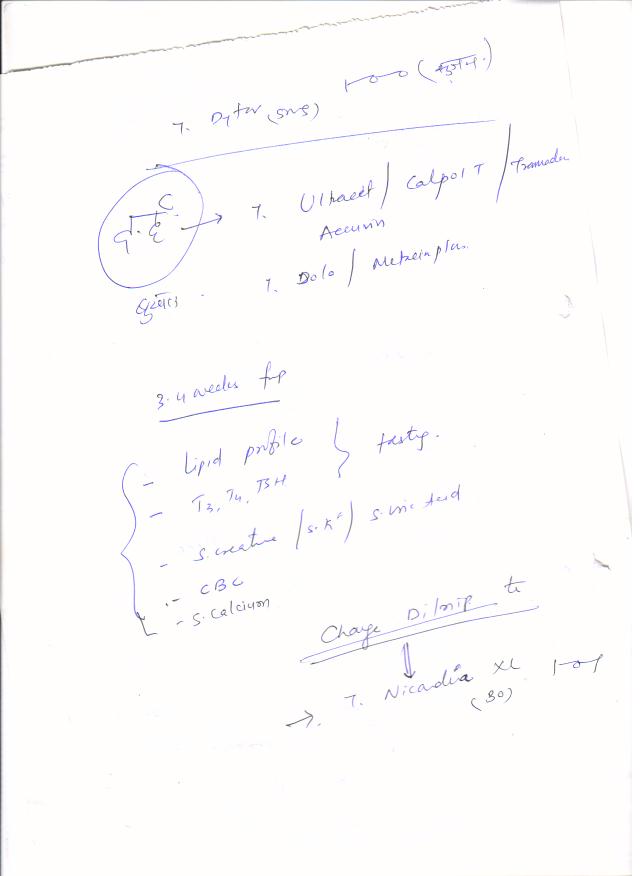 T. Dytor (5mg) 1-0-0 (सूजन)
दर्द → T. Ultracet / Calpol T / Tramadol
Accuvin
बुखार T. Dolo / Metacin plus
3-4 weeks
- Lipid profile } fasting.
- T3, T4, TSH
- S. creatinine / S. K+ / S. Uric Acid
- CBC
- S. Calcium
Change Dilnip to
→ T. Nicardia XL 1-0-1
(30)